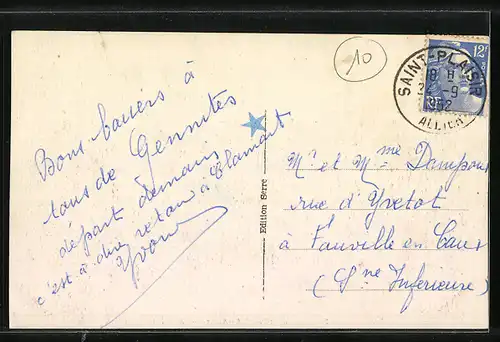 Bons baisers à
tous de Gennetines
départ demain
c'est à dire retour à Clamart
Yvonne
Edition Serre
10
12F
SAINT-PLAISIR
18 H
-9
1952
ALLIER
Mr et Mme Dampons
rue d'Yvetot
à Fauville en Caux
(Sne Inférieure)